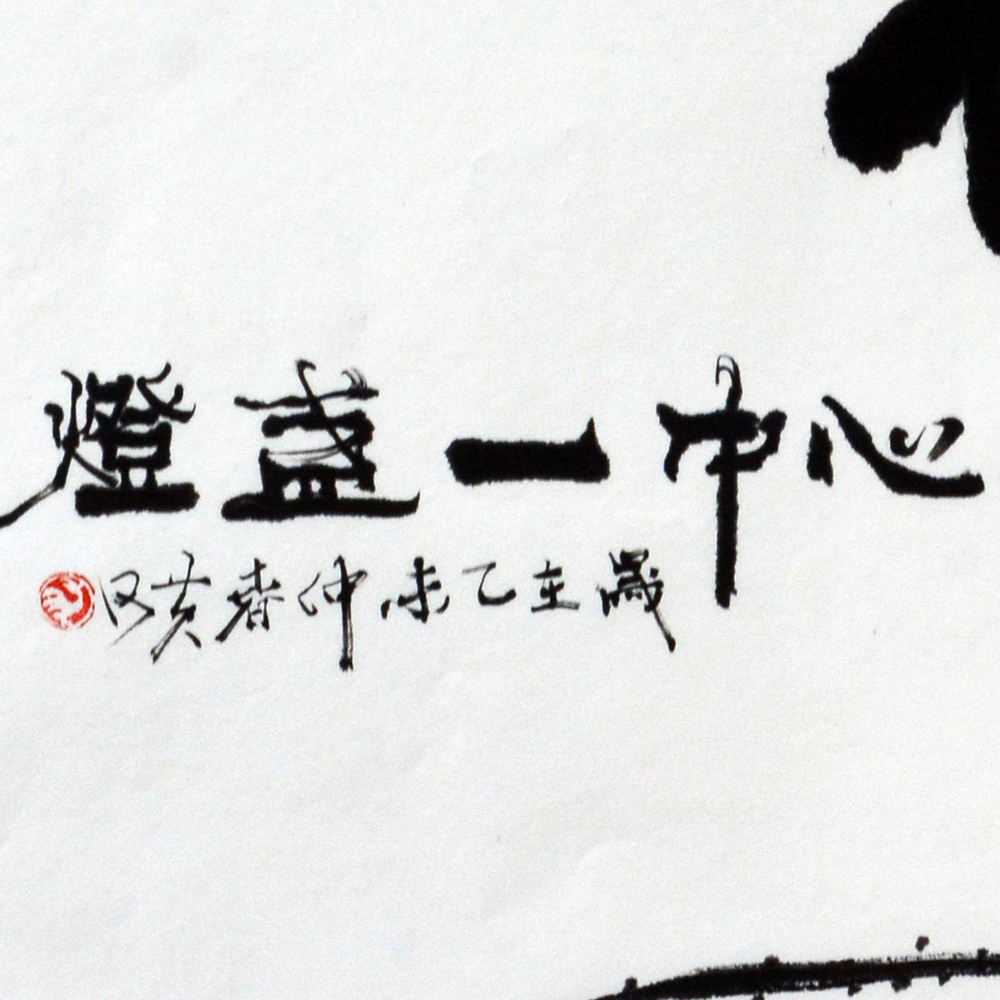 心中一盞燈
歲在乙未仲春黃